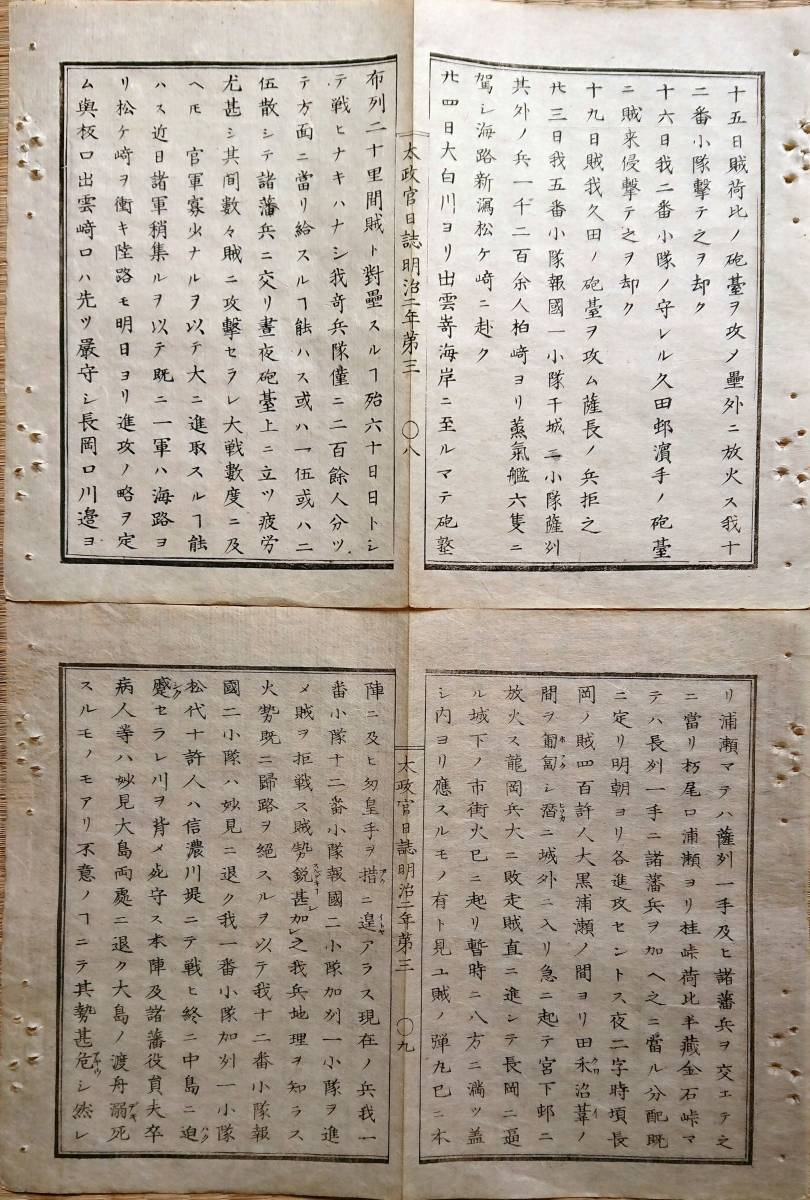 十五日賊荷比ノ砲臺ヲ攻メ壘外ニ放火ス我十
二番小隊擊テ之ヲ却ク
十六日我二番小隊ノ守レル久田邨濱手ノ砲臺
ニ賊来侵擊テ之ヲ却ク
十九日賊我久田ノ砲臺ヲ攻ム薩長ノ兵拒之
廿三日我五番小隊報國一小隊干城二小隊薩刕
其外ノ兵一千二百余人柏崎ヨリ蒸氣艦六隻ニ
駕シ海路新潟松ケ崎ニ赴ク
廿四日大白川ヨリ出雲嵜海岸ニ至ルマテ砲塾
太政官日誌明治二年第三 〇八
布列二十里間賊ト對壘スルヿ殆六十日日トシ
テ戰ヒナキハナシ我奇兵隊僅ニ二百餘人分ツ
テ方面ニ當リ給スルヿ能ハス或ハ一伍或ハ二
伍散シテ諸藩兵ニ交リ晝夜砲臺上ニ立ツ疲労
尤甚シ其间數々賊ニ攻擊セラレ大戰數度ニ及
ヘモ官軍寡少ナルヲ以テ大ニ進取スルヿ能
ハス近日諸軍稍集ルヲ以テ既ニ一軍ハ海路ヨ
リ松ケ崎ヲ衝キ陸路モ明日ヨリ進攻ノ略ヲ定
ム與板口出雲崎口ハ先ツ嚴守シ長岡口川邉ヨ
リ浦瀬マテハ薩刕一手及ヒ諸藩兵ヲ交エテ之
ニ當リ朽尾口浦瀬ヨリ桂峠荷比半藏金石峠マ
テハ長刕一手ニ諸藩兵ヲ加ヘ之ニ當ル分配既
ニ定リ明朝ヨリ各進攻セントス夜二字時頃長
岡ノ賊四百許人大黒浦瀬ノ間ヨリ田禾沼葦ノ
間ヲ匍匐シ潛ニ城外ニ入リ急ニ起テ宮下邨ニ
放火ス龍岡兵大ニ敗走賊直ニ進ンテ長岡ニ逼
ル城下ノ市街火巳ニ起リ暫時ニ八方ニ満ツ盖
シ内ヨリ應スルモノ有ト見ユ賊ノ弾丸巳ニ本
太政官日誌明治二年第三 〇九
陣ニ及ヒ匇皇手ヲ措ニ遑アラス現在ノ兵我一
番小隊十二番小隊報國二小隊加刕一小隊ヲ進
メ賊ヲ拒戰ス賊勢鋭甚加之我兵地理ヲ知ラス
火勢既ニ歸路ヲ絕スルヲ以テ我十二番小隊報
國二小隊ハ妙見ニ退ク我一番小隊加刕一小隊
松代十許人ハ信濃川堤ニテ戰ヒ終ニ中島ニ迫
蹙セラレ川ヲ背メ死守ス本陣及諸藩役貟夫卒
病人等ハ妙見大島両處ニ退ク大島ノ渡舟溺死
スルモノモアリ不意ノヿニテ其勢甚危シ然レ